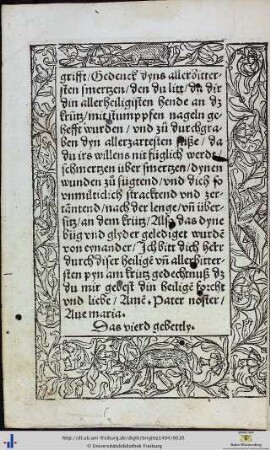 grifft/Gedenck dyns aller bitter-
sten smertzen/den du litt/do dir
din allerheiligisten hende an dz
krütz/mit stumppfen nageln ge-
hefft wurden/vnd zů durchgra-
ben dyn allerzartesten füße/da
du irs willens nit füglich werdē
schmertzen über smertzen/dynen
wunden zů fügtend/vnd dich so
vnmilticlich strackend vnd zer-
tantend/nach der lenge/vnd über-
sitz/an dem krütz/Also das dyne
büg vnd glyder gelediget wurdē
von eynander/Ich bit dich herr
durch diser heiligē vñ allerbitter-
sten pyn am krütz gedechtnuß dz
du mir gebest din heilige forcht
vnd liebe/Amē. Pater noster/
Aue maria.
Das vierd gebettly.
http://dl.ub.uni-freiburg.de/diglit/brigitta1494/0010
© Universitätsbibliothek Freiburg
Baden-Württemberg